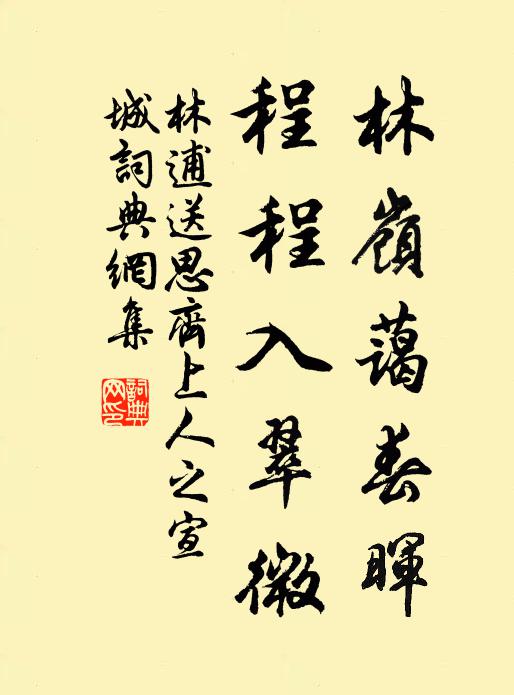 林嶺藹春暉
程程入翠微
林逋送思齊上人之宣
城詞典網集
詞典网印